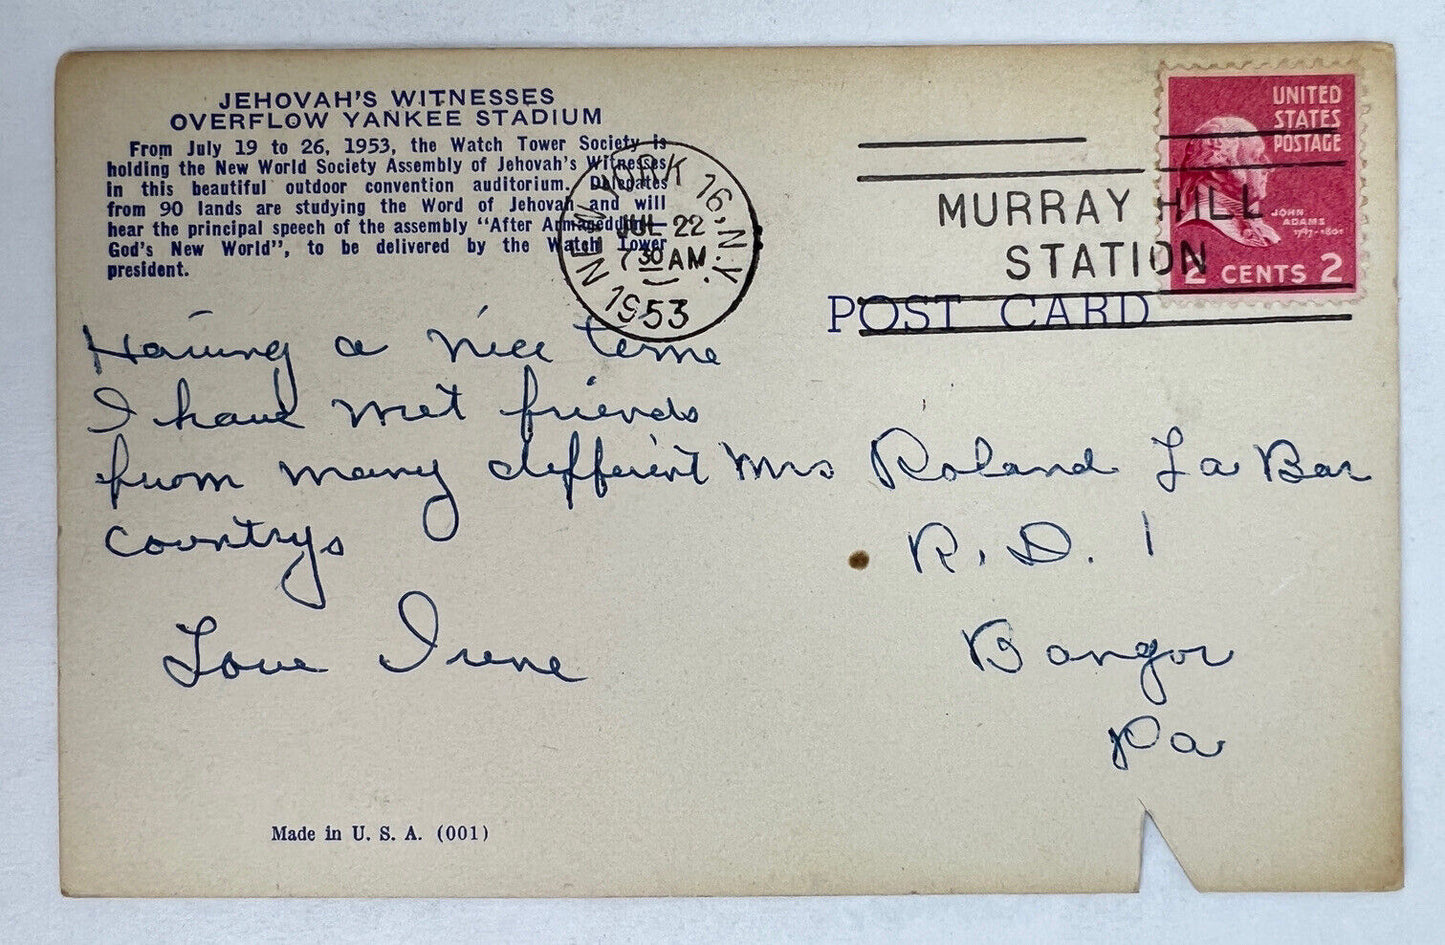 JEHOVAH'S WITNESSES
OVERFLOW YANKEE STADIUM
From July 19 to 26, 1953, the Watch Tower Society is
holding the New World Society Assembly of Jehovah's Witnesses
in this beautiful outdoor convention auditorium. Delegates
from 90 lands are studying the Word of Jehovah and will
hear the principal speech of the assembly "After Armageddon—
God's New World", to be delivered by the Watch Tower
president.
Having a nice time
I have met friends
from many different
countrys
Love Irene
Made in U. S. A. (001)
NEW YORK 16, N.Y.
JUL 22
7 30 AM
1953
MURRAY HILL
STATION
UNITED
STATES
POSTAGE
JOHN
ADAMS
1797-1801
2 CENTS 2
POST CARD
Mrs Roland La Bar
R. D. 1
Bangor
Pa